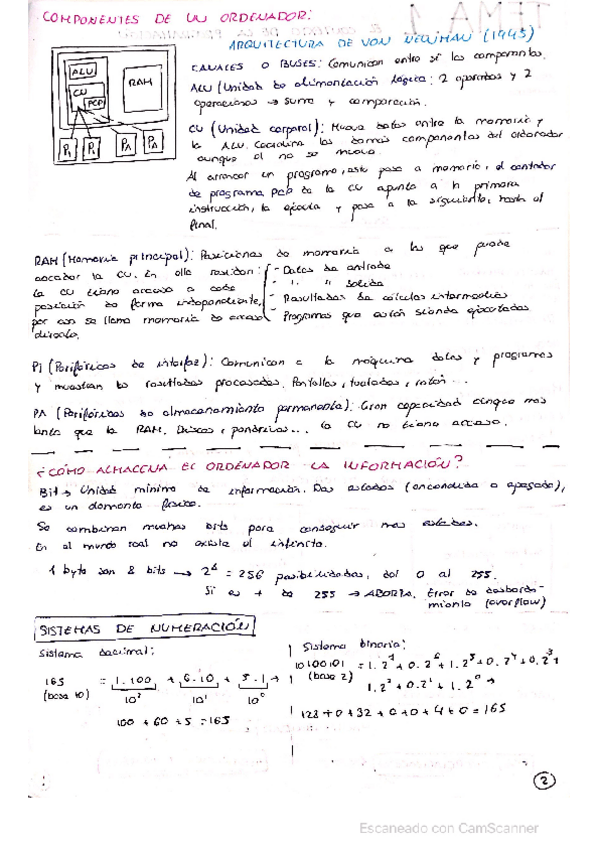 COMPONENTES DE UN ORDENADOR:
ARQUITECTURA DE VON NEWMAN (1945)
ALU
CU
PCP
RAM
PI
PI
PA
PA
CANALES O BUSES: Comunican entre sí los componentes.
ALU (Unidad de alimentación lógica: 2 operandos y 2
operaciones → suma y comparación.
CU (Unidad corporal): Mueve datos entre la memoria y
la ALU. Coordina los demás componentes del ordenador
aunque él no se mueva.
Al arrancar un programa, este pasa a memoria, el contador
de programa PCP de la CU apunta a la primera
instrucción, la ejecuta y pasa a la siguiente, hasta el
final.
RAM (Memoria principal): Posiciones de memoria a las que puede
acceder la CU. En ella residen:
la CU tiene acceso a cada
posición de forma independiente,
por eso se llama memoria de acceso
directo.
- Datos de entrada
- " " salida
- Resultados de cálculos intermedios
- Programas que están siendo ejecutados
PI (Periféricos de interfaz): Comunican a la máquina datos y programas
y muestran los resultados procesados. Pantallas, teclados, ratón...
PA (Periféricos de almacenamiento permanente): Gran capacidad aunque más
lenta que la RAM. Discos, pendrives... la CU no tiene acceso.
¿CÓMO ALMACENA EL ORDENADOR LA INFORMACIÓN?
Bit → Unidad mínima de información. Dos estados (encendido o apagado),
es un elemento físico.
Se combinan muchos bits para conseguir más estados.
En el mundo real no existe el infinito.
1 byte son 8 bits → = 256 posibilidades, del 0 al 255.
Si es + de 255 → ABORTA. Error de desborda-
miento (overflow)
SISTEMAS DE NUMERACIÓN
Sistema decimal:
165 = 1·100 + 6·10 + 5·1
(base 10) 10² 10¹ 10⁰
100 + 60 + 5 = 165
Sistema binario:
10100101 = 1·2⁷ + 0·2⁶ + 1·2⁵ + 0·2⁴ + 0·2³
(base 2) 1·2² + 0·2¹ + 1·2⁰ →
128 + 0 + 32 + 0 + 0 + 4 + 0 = 165
2
Escaneado con CamScanner